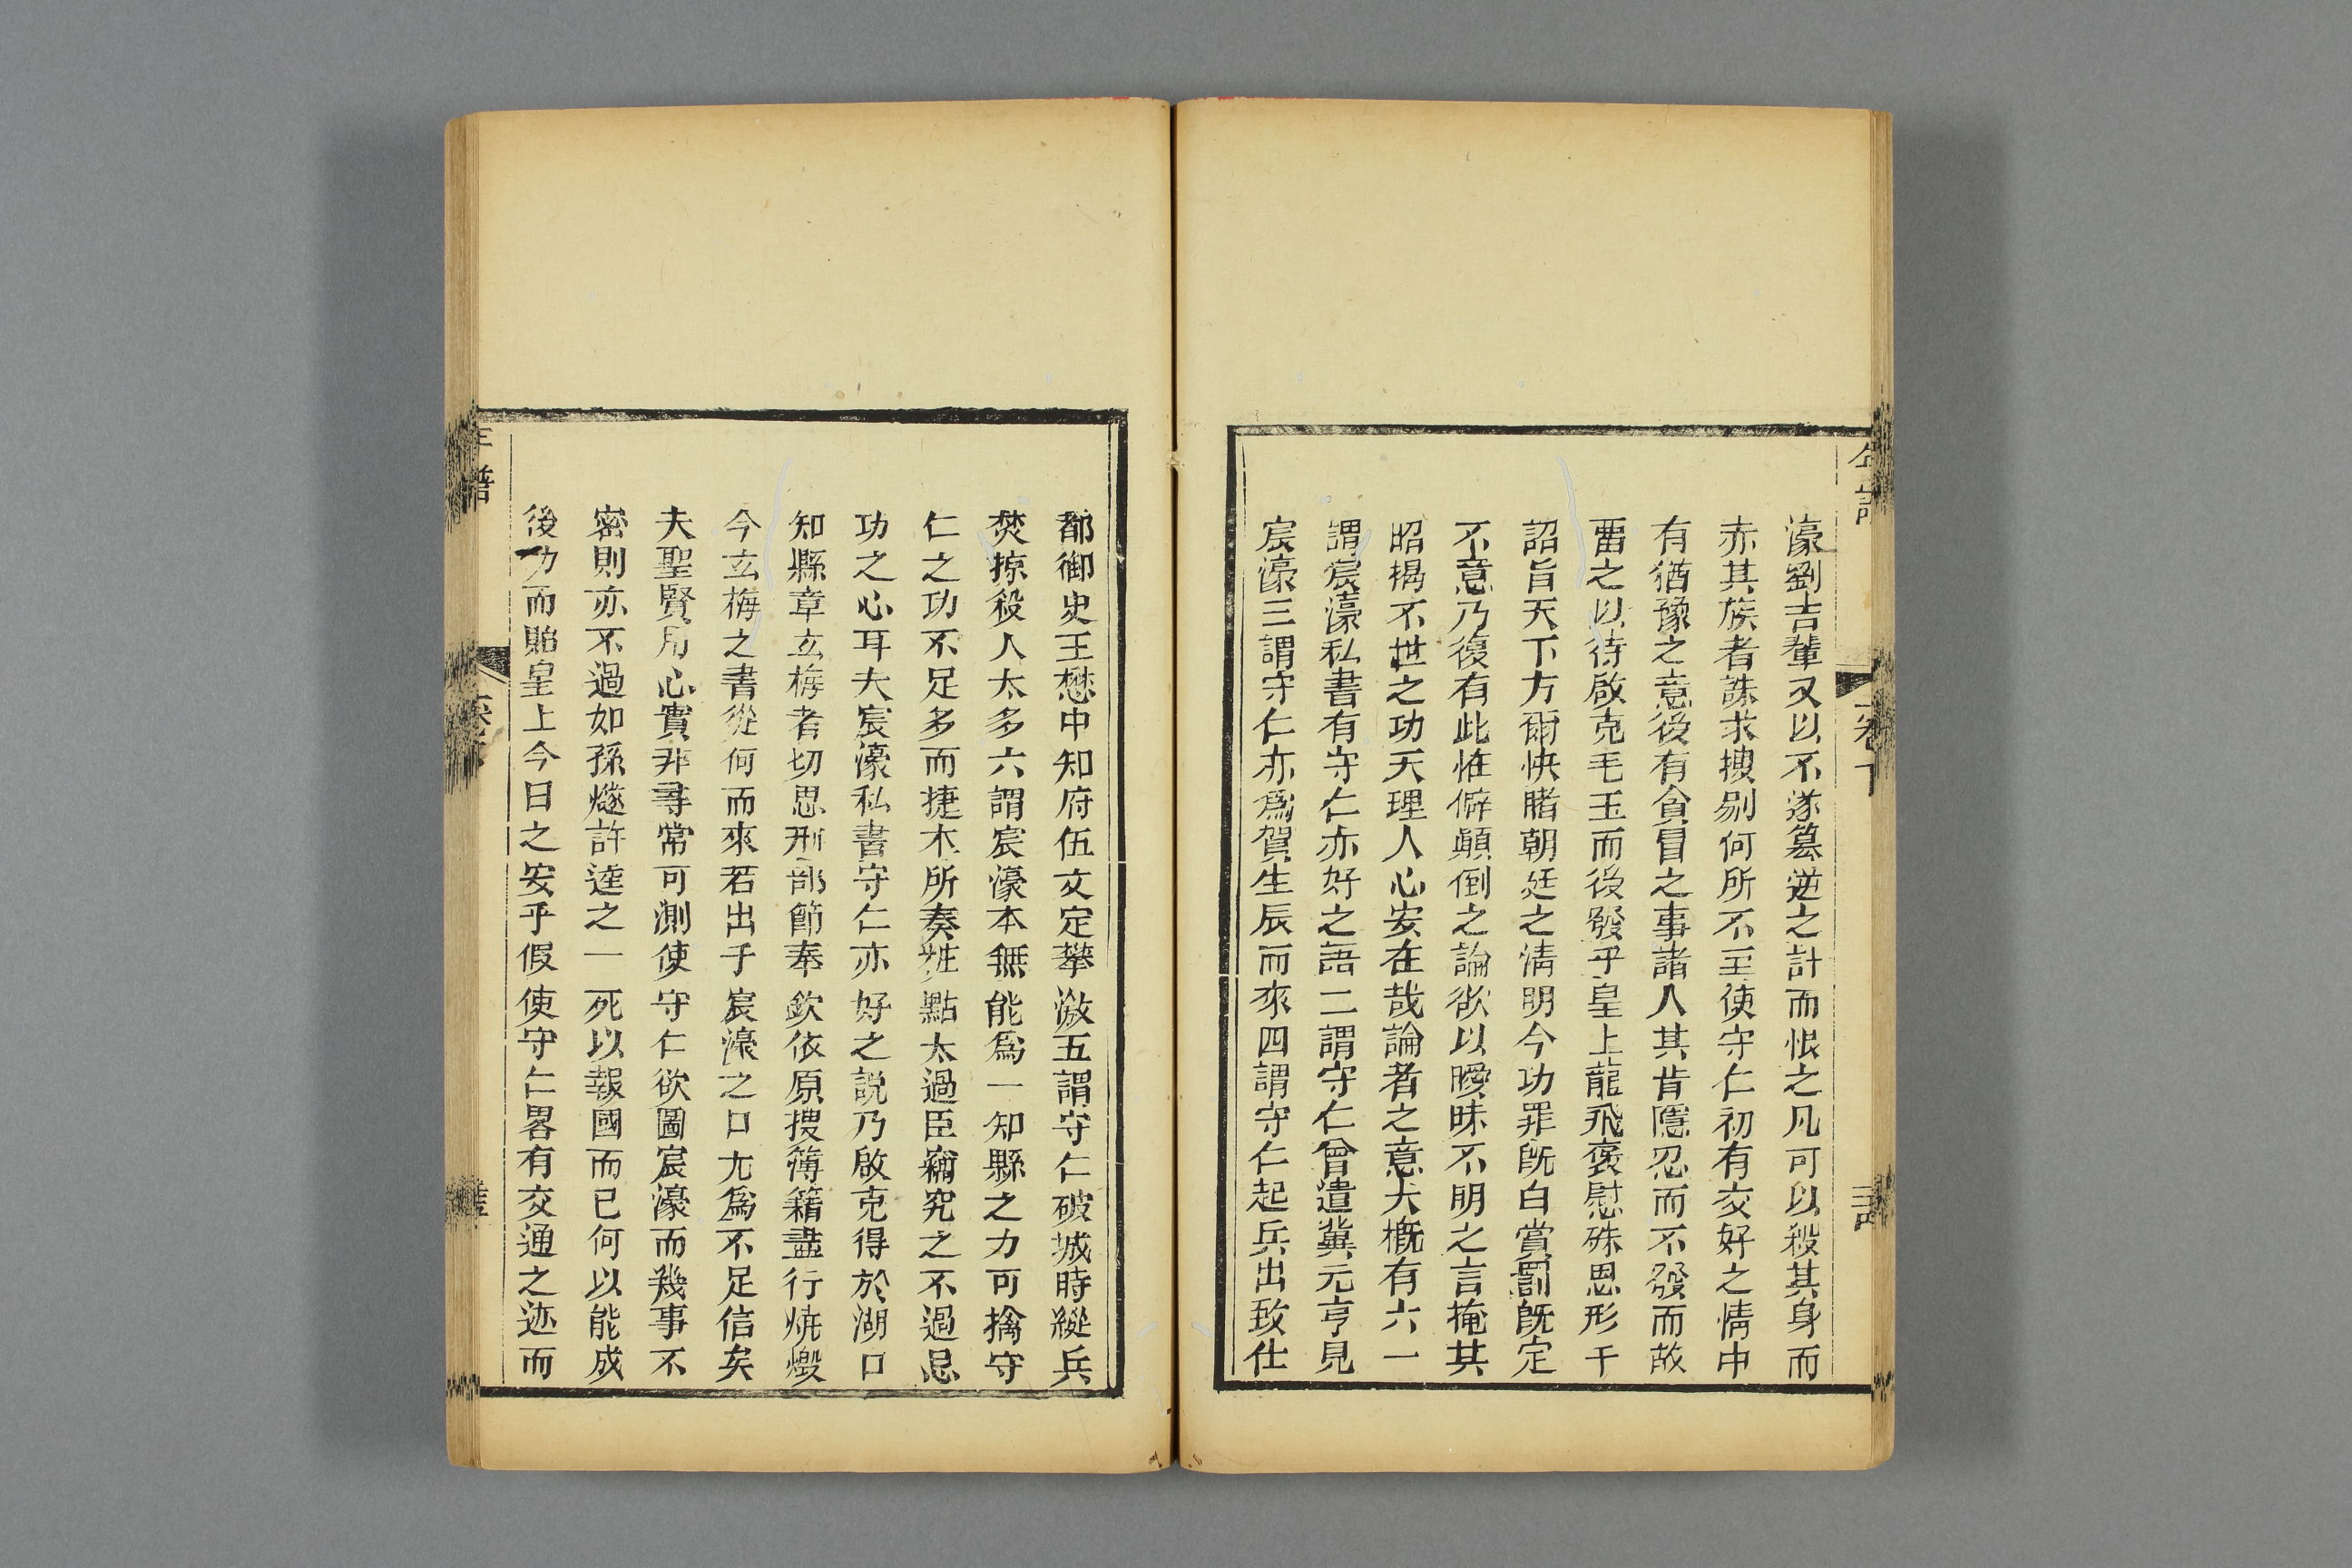 濠劉吉輩又以不遂簒逆之計而恨之凡可以殺其身而
赤其族者誅求搜剔何所不至使守仁初有交好之情中
有猶豫之意後有貪冒之事諸人其肯隱忍而不發而故
畱之以待啟克毛玉而後發乎皇上龍飛褒慰殊恩形于
詔旨天下方爾快睹朝廷之清明今功罪旣白賞罰旣定
不意乃復有此惟僻顛倒之論欲以曖昧不明之言掩其
昭揭不世之功天理人心安在哉論者之意大槪有六一
謂宸濠私書有守仁亦好之語二謂守仁曾遣冀元亨見
宸濠三謂守仁亦爲賀生辰而來四謂守仁起兵出致仕
都御史王懋中知府伍文定攀激五謂守仁破城時縱兵
焚掠殺人太多六謂宸濠本無能爲一知縣之力可擒守
仁之功不足多而捷本所奏粧點太過臣竊究之不過忌
功之心耳夫宸濠私書守仁亦好之説乃啟克得於湖口
知縣章玄梅者切思刑部節奉欽依原搜簿籍盡行燒燬
今玄梅之書從何而來若出乎宸濠之口尤爲不足信矣
夫聖賢用心實非尋常可測使守仁欲圖宸濠而幾事不
密則亦不過如孫燧許逵之一死以報國而已何以能成
後功而貽皇上今日之安乎假使守仁畧有交通之迹而
年譜
卷下